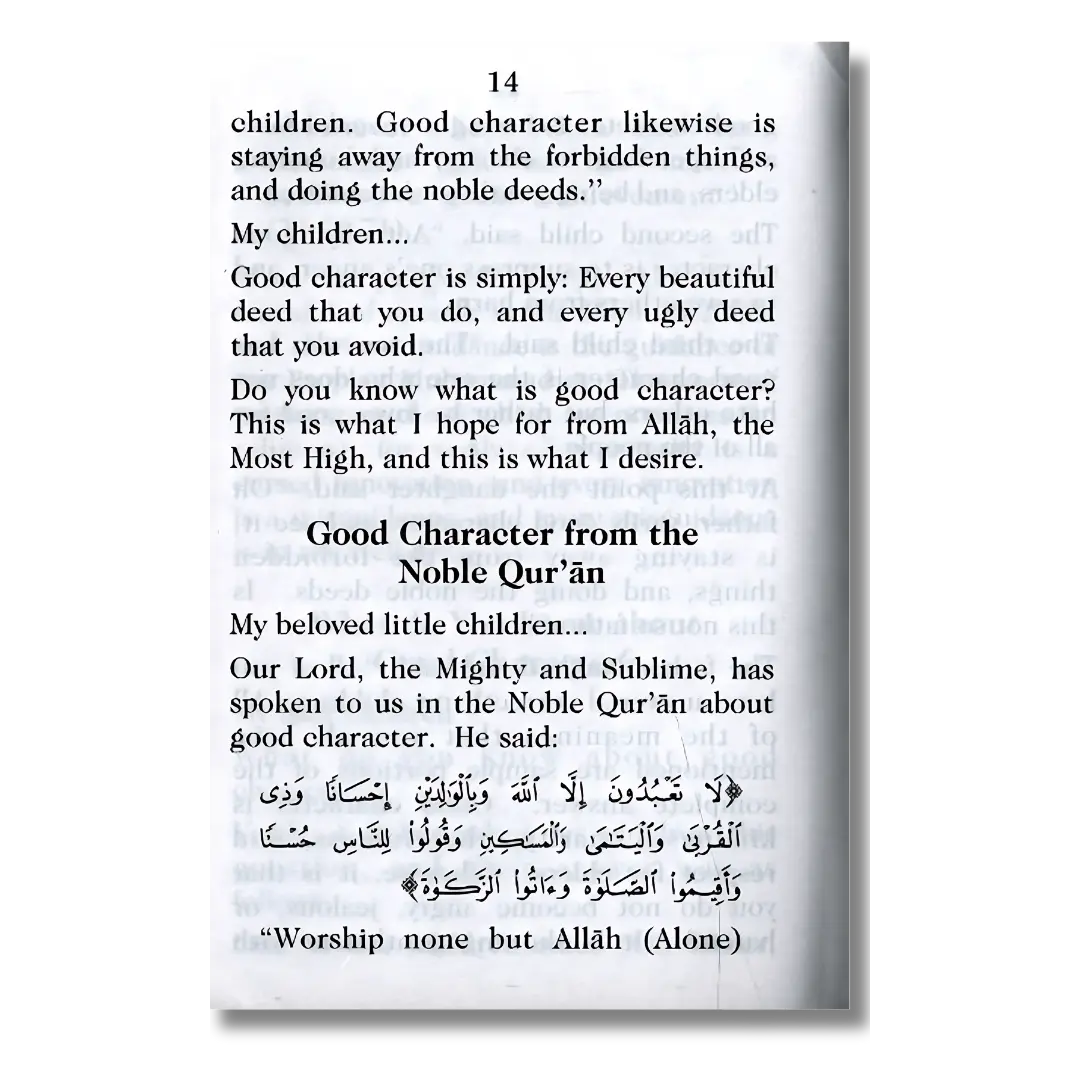 14
children. Good character likewise is
staying away from the forbidden things,
and doing the noble deeds.”
My children...
Good character is simply: Every beautiful
deed that you do, and every ugly deed
that you avoid.
Do you know what is good character?
This is what I hope for from Allāh, the
Most High, and this is what I desire.
Good Character from the
Noble Qur’ān
My beloved little children...
Our Lord, the Mighty and Sublime, has
spoken to us in the Noble Qur’ān about
good character. He said:
﴿لَا تَعْبُدُونَ إِلَّا ٱللَّهَ وَبِٱلْوَٰلِدَيْنِ إِحْسَانًا وَذِى
ٱلْقُرْبَىٰ وَٱلْيَتَـٰمَىٰ وَٱلْمَسَـٰكِينِ وَقُولُوا۟ لِلنَّاسِ حُسْنًا
وَأَقِيمُوا۟ ٱلصَّلَوٰةَ وَءَاتُوا۟ ٱلزَّكَوٰةَ﴾
“Worship none but Allāh (Alone)